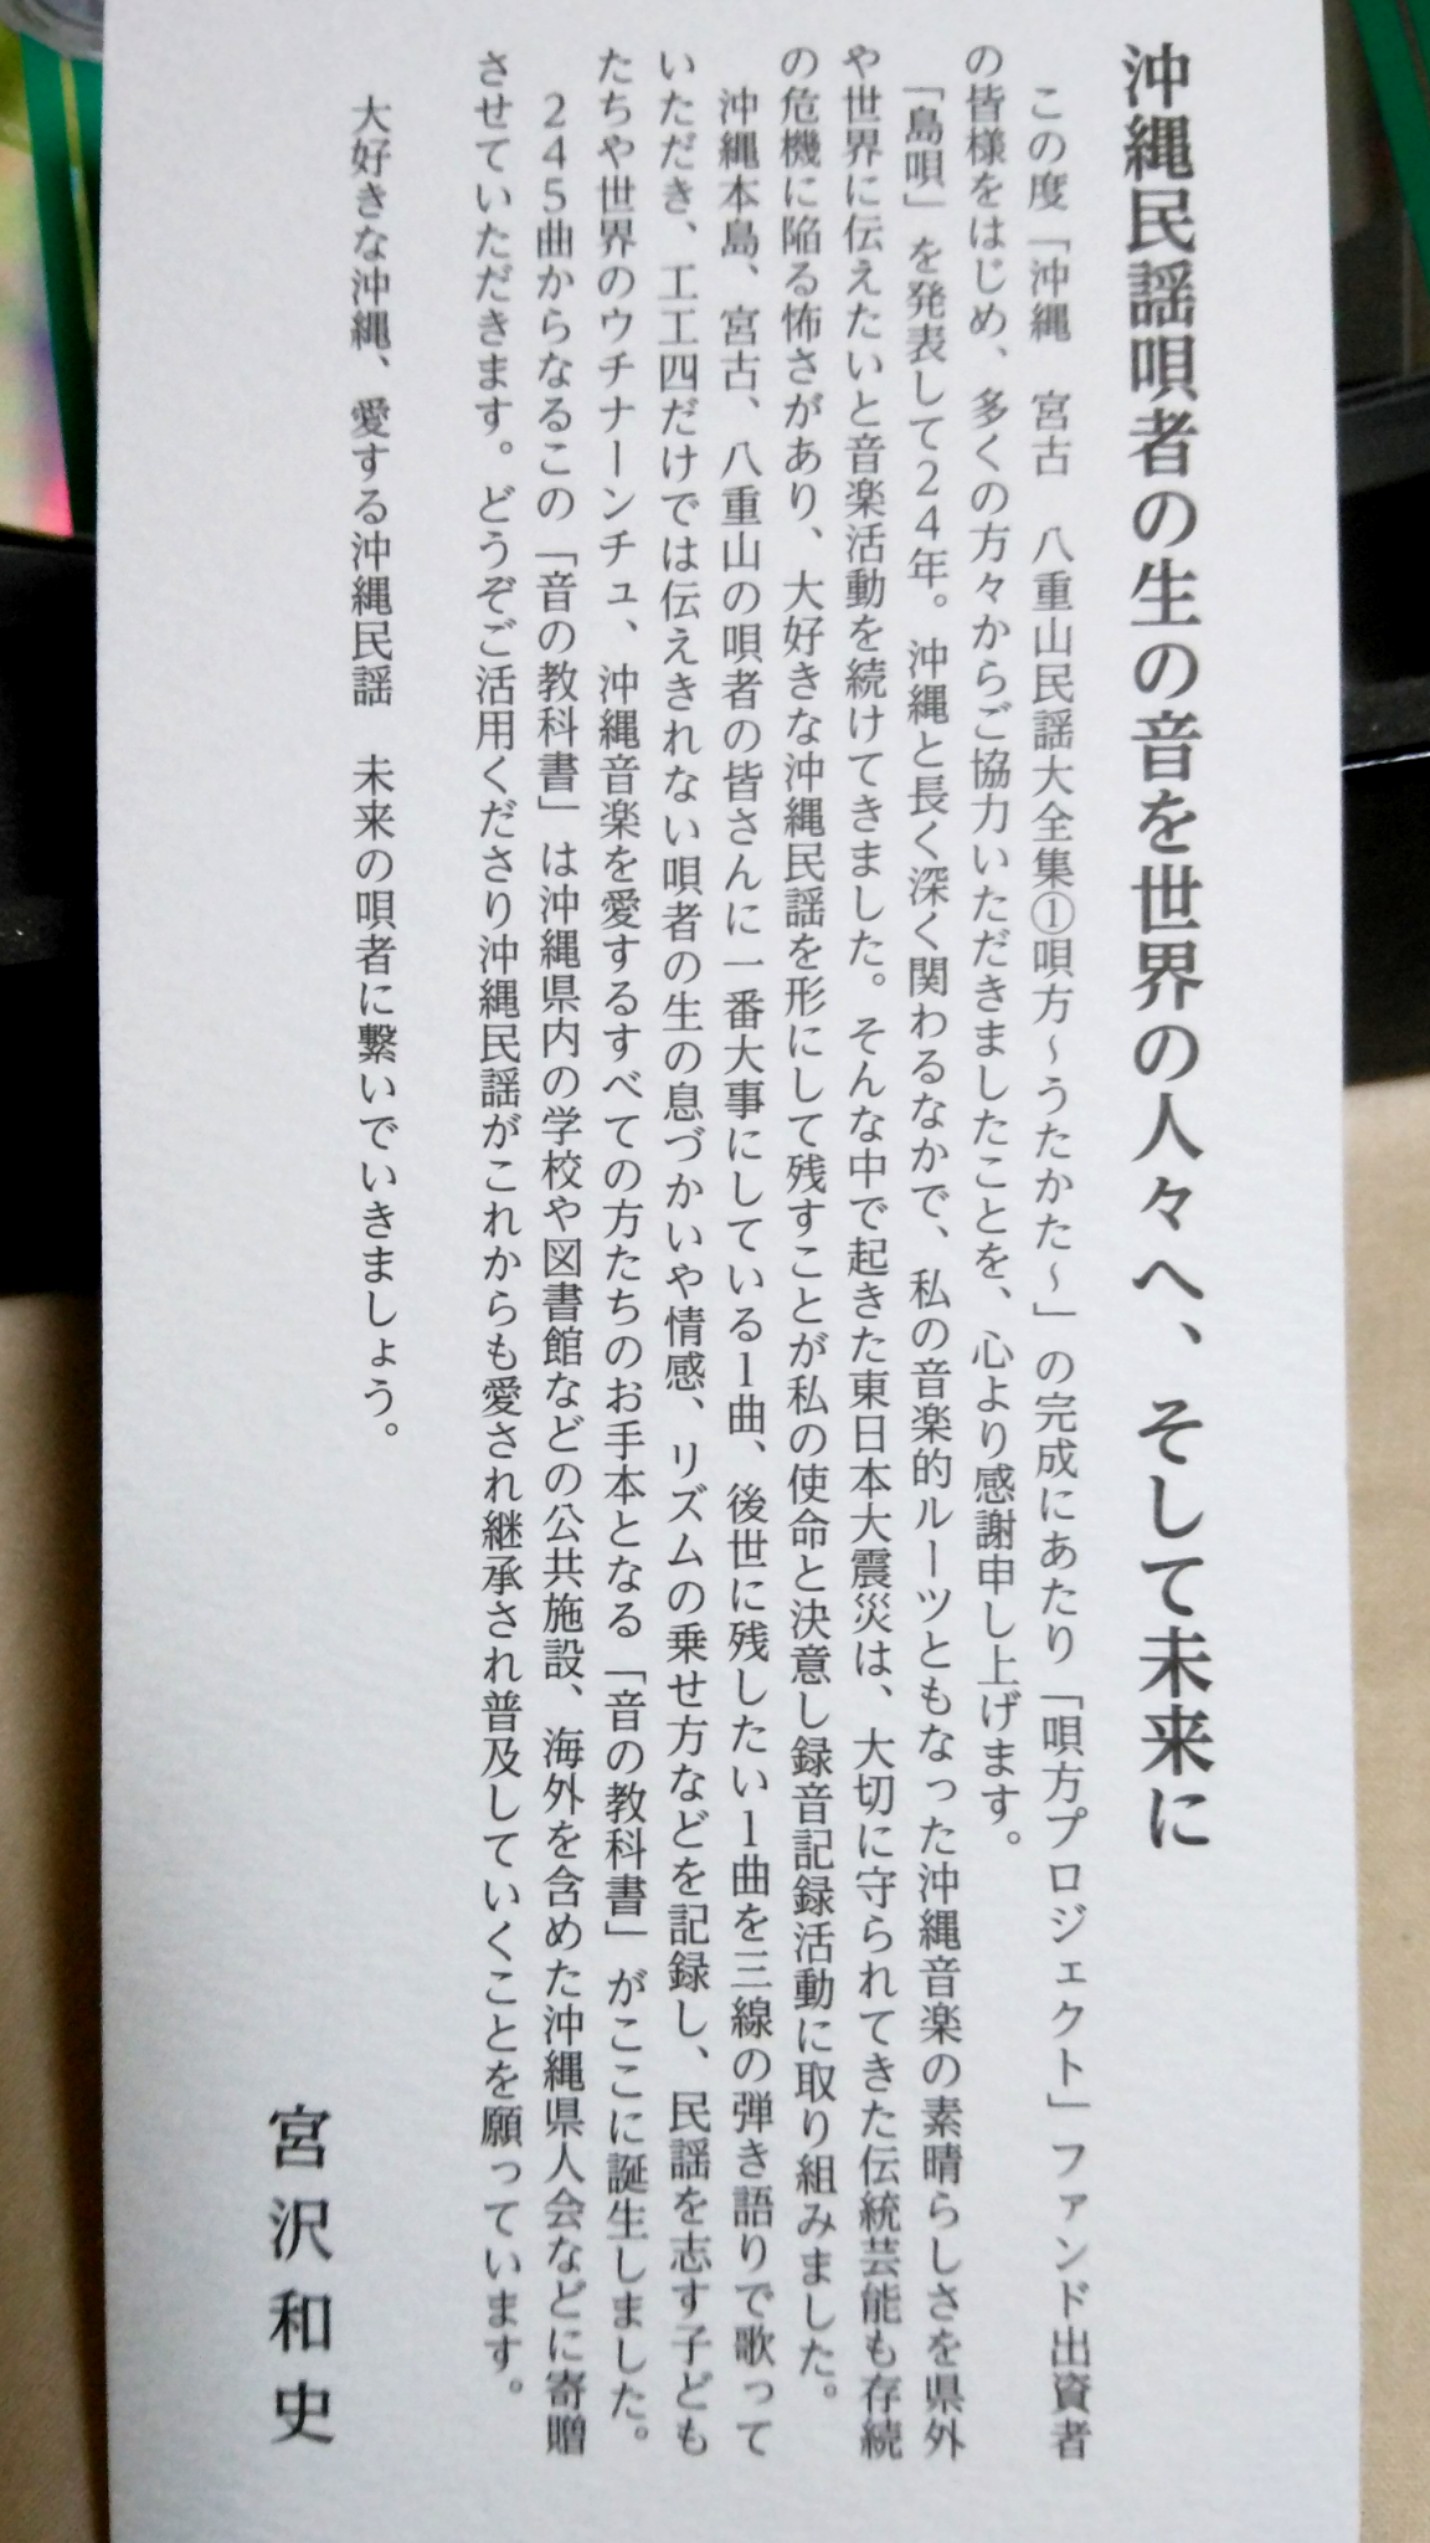 沖縄民謡唄者の生の音を世界の人々へ、そして未来に
この度「沖縄　宮古　八重山民謡大全集①唄方～うたかた～」の完成にあたり「唄方プロジェクト」ファンド出資者
の皆様をはじめ、多くの方々からご協力いただきましたことを、心より感謝申し上げます。
「島唄」を発表して24年。沖縄と長く深く関わるなかで、私の音楽的ルーツともなった沖縄音楽の素晴らしさを県外
や世界に伝えたいと音楽活動を続けてきました。そんな中で起きた東日本大震災は、大切に守られてきた伝統芸能も存続
の危機に陥る怖さがあり、大好きな沖縄民謡を形にして残すことが私の使命と決意し録音記録活動に取り組みました。
沖縄本島、宮古、八重山の唄者の皆さんに一番大事にしている1曲、後世に残したい1曲を三線の弾き語りで歌って
いただき、工工四だけでは伝えきれない唄者の生の息づかいや情感、リズムの乗せ方などを記録し、民謡を志す子ども
たちや世界のウチナーンチュ、沖縄音楽を愛するすべての方たちのお手本となる「音の教科書」がここに誕生しました。
245曲からなるこの「音の教科書」は沖縄県内の学校や図書館などの公共施設、海外を含めた沖縄県人会などに寄贈
させていただきます。どうぞご活用くださり沖縄民謡がこれからも愛され継承され普及していくことを願っています。
大好きな沖縄、愛する沖縄民謡　未来の唄者に繋いでいきましょう。
宮沢和史